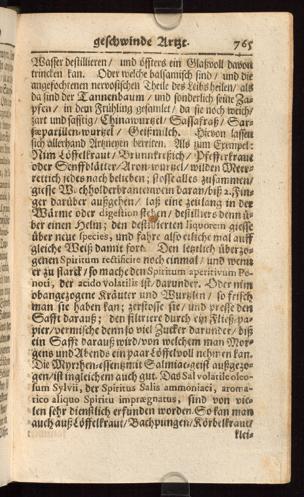 geschwinde Artzt. 765
Wasser destillieren / und öffters ein Glaßvoll davon
trincken kan. Oder welche balsamisch sind / und die
angefochtenen nervosischen Theile des Leibs heilen / als
da sind der Tannenbaum / und sonderlich seine Za-
pfen / in dem Frühling gesamlet / da sie noch weich /
zart und safftig / Chinawurzel / Sassafraß / Sar-
saparillen-wurtzel / Geißmilch. Hievon lassen
sich allerhand Artzneyen bereiten. Als zum Exempel:
Nim Löffelkraut / Brunnkreßich / Pfefferkraut
oder Senffblätter / Aron-wurtzel / wilden Meer-
rettich jedes nach belieben; stosse alles zusammen /
giesse Wachholderbrantenwein daran / biß 2. Fin-
ger darüber außgehen / laß eine zeitlang in der
Wärme oder digestion stehen / destilliers denn ü-
ber einen Helm; den destillierten liquorem giesse
über neue species, und fahre also etliche mal auff
gleiche Weiß damit fort. Den letzlich überzo-
genen Spiritum rectificire noch einmal / und wenn
er zu starck / so mache den Spiritum aperitivum Pe-
noti, der acido volatilis ist / darunder. Oder nim
obangezogene Kräuter und Wurtzlen / so frisch
man sie haben kan; zerstosse sie / und presse den
Safft darauß; den filtrier durch ein Fließpa-
pier / vermische denn so viel Zucker darunder / biß
ein Safft darauß wird / von welchem man Mor-
gens und Abends ein paar Löffelvoll nehmen kan.
Die Myrrhen-essentz mit Salmiac-geist außgezo-
gen / ist ingleichem auch gut. Das Sal volatile oleo-
sum Sylvii, der Spiritus Salis ammoniaci, aroma-
tico aliquo Spiritu imprægnatus, sind von vie-
len sehr dienstlich erfunden worden. So kan man
auch auß Löffelkraut / Bachpungen / Körbelkraut /
klei-